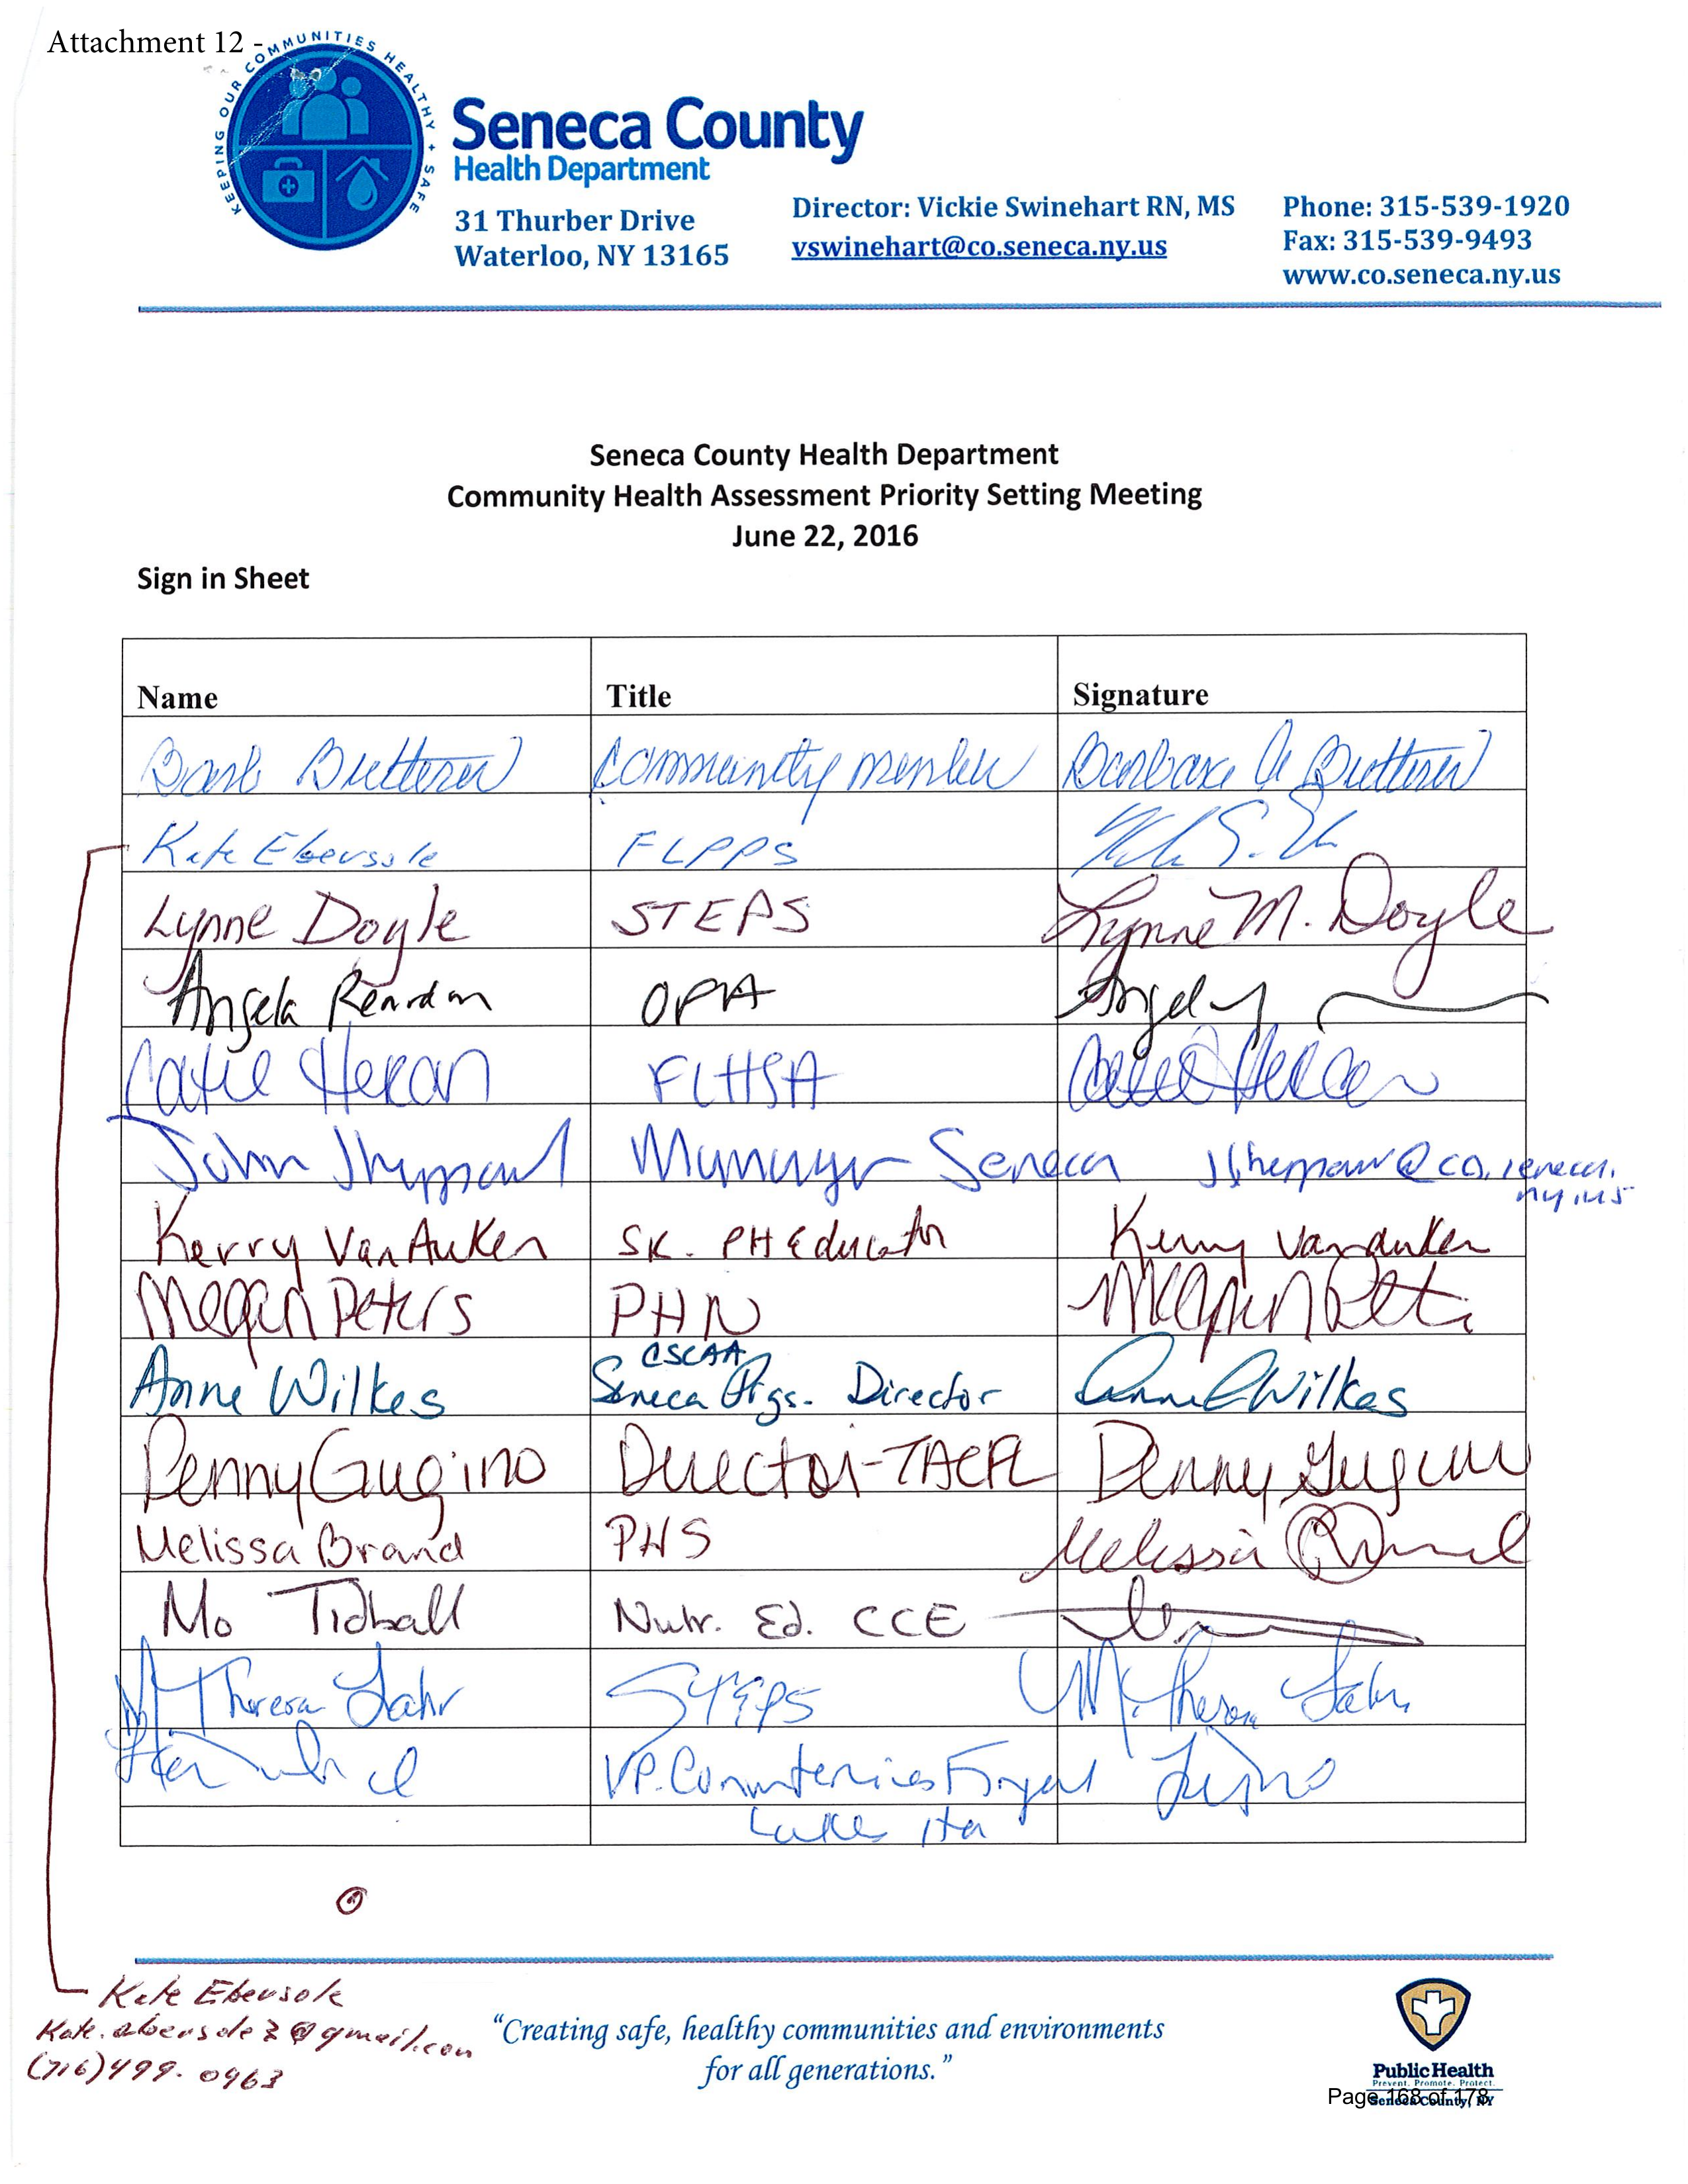 Attachment 12 -
KEEPING OUR COMMUNITIES HEALTHY + SAFE
Seneca County
Health Department
31 Thurber Drive
Waterloo, NY 13165
Director: Vickie Swinehart RN, MS
vswinehart@co.seneca.ny.us
Phone: 315-539-1920
Fax: 315-539-9493
www.co.seneca.ny.us
Seneca County Health Department
Community Health Assessment Priority Setting Meeting
June 22, 2016
Sign in Sheet
Name Title Signature
Barb community member Barbara A
Kate Ebersole FLPPS
Lynne Doyle STEPS Lynne M. Doyle
Angela Reardon OPA
Catie Heran FLHSA
John Manager Seneca
Kerry VanAuken PH Educator Kerry VanAuken
Megan Peters PHN Megan
CSCAA
Anne Wilkes Seneca Prgs. Director Anne Wilkes
Penny Gugino Director-TACFL Penny Gugino
Melissa Brand PHS Melissa
Mo Tidball Nutr. Ed. CCE
Theresa Lahr STEPS M. Theresa Lahr
VP.
Kate Ebersole
(716)499-0963
“Creating safe, healthy communities and environments
for all generations.”
Public Health
Prevent. Promote. Protect.
Seneca County, NY
Page 168 of 178